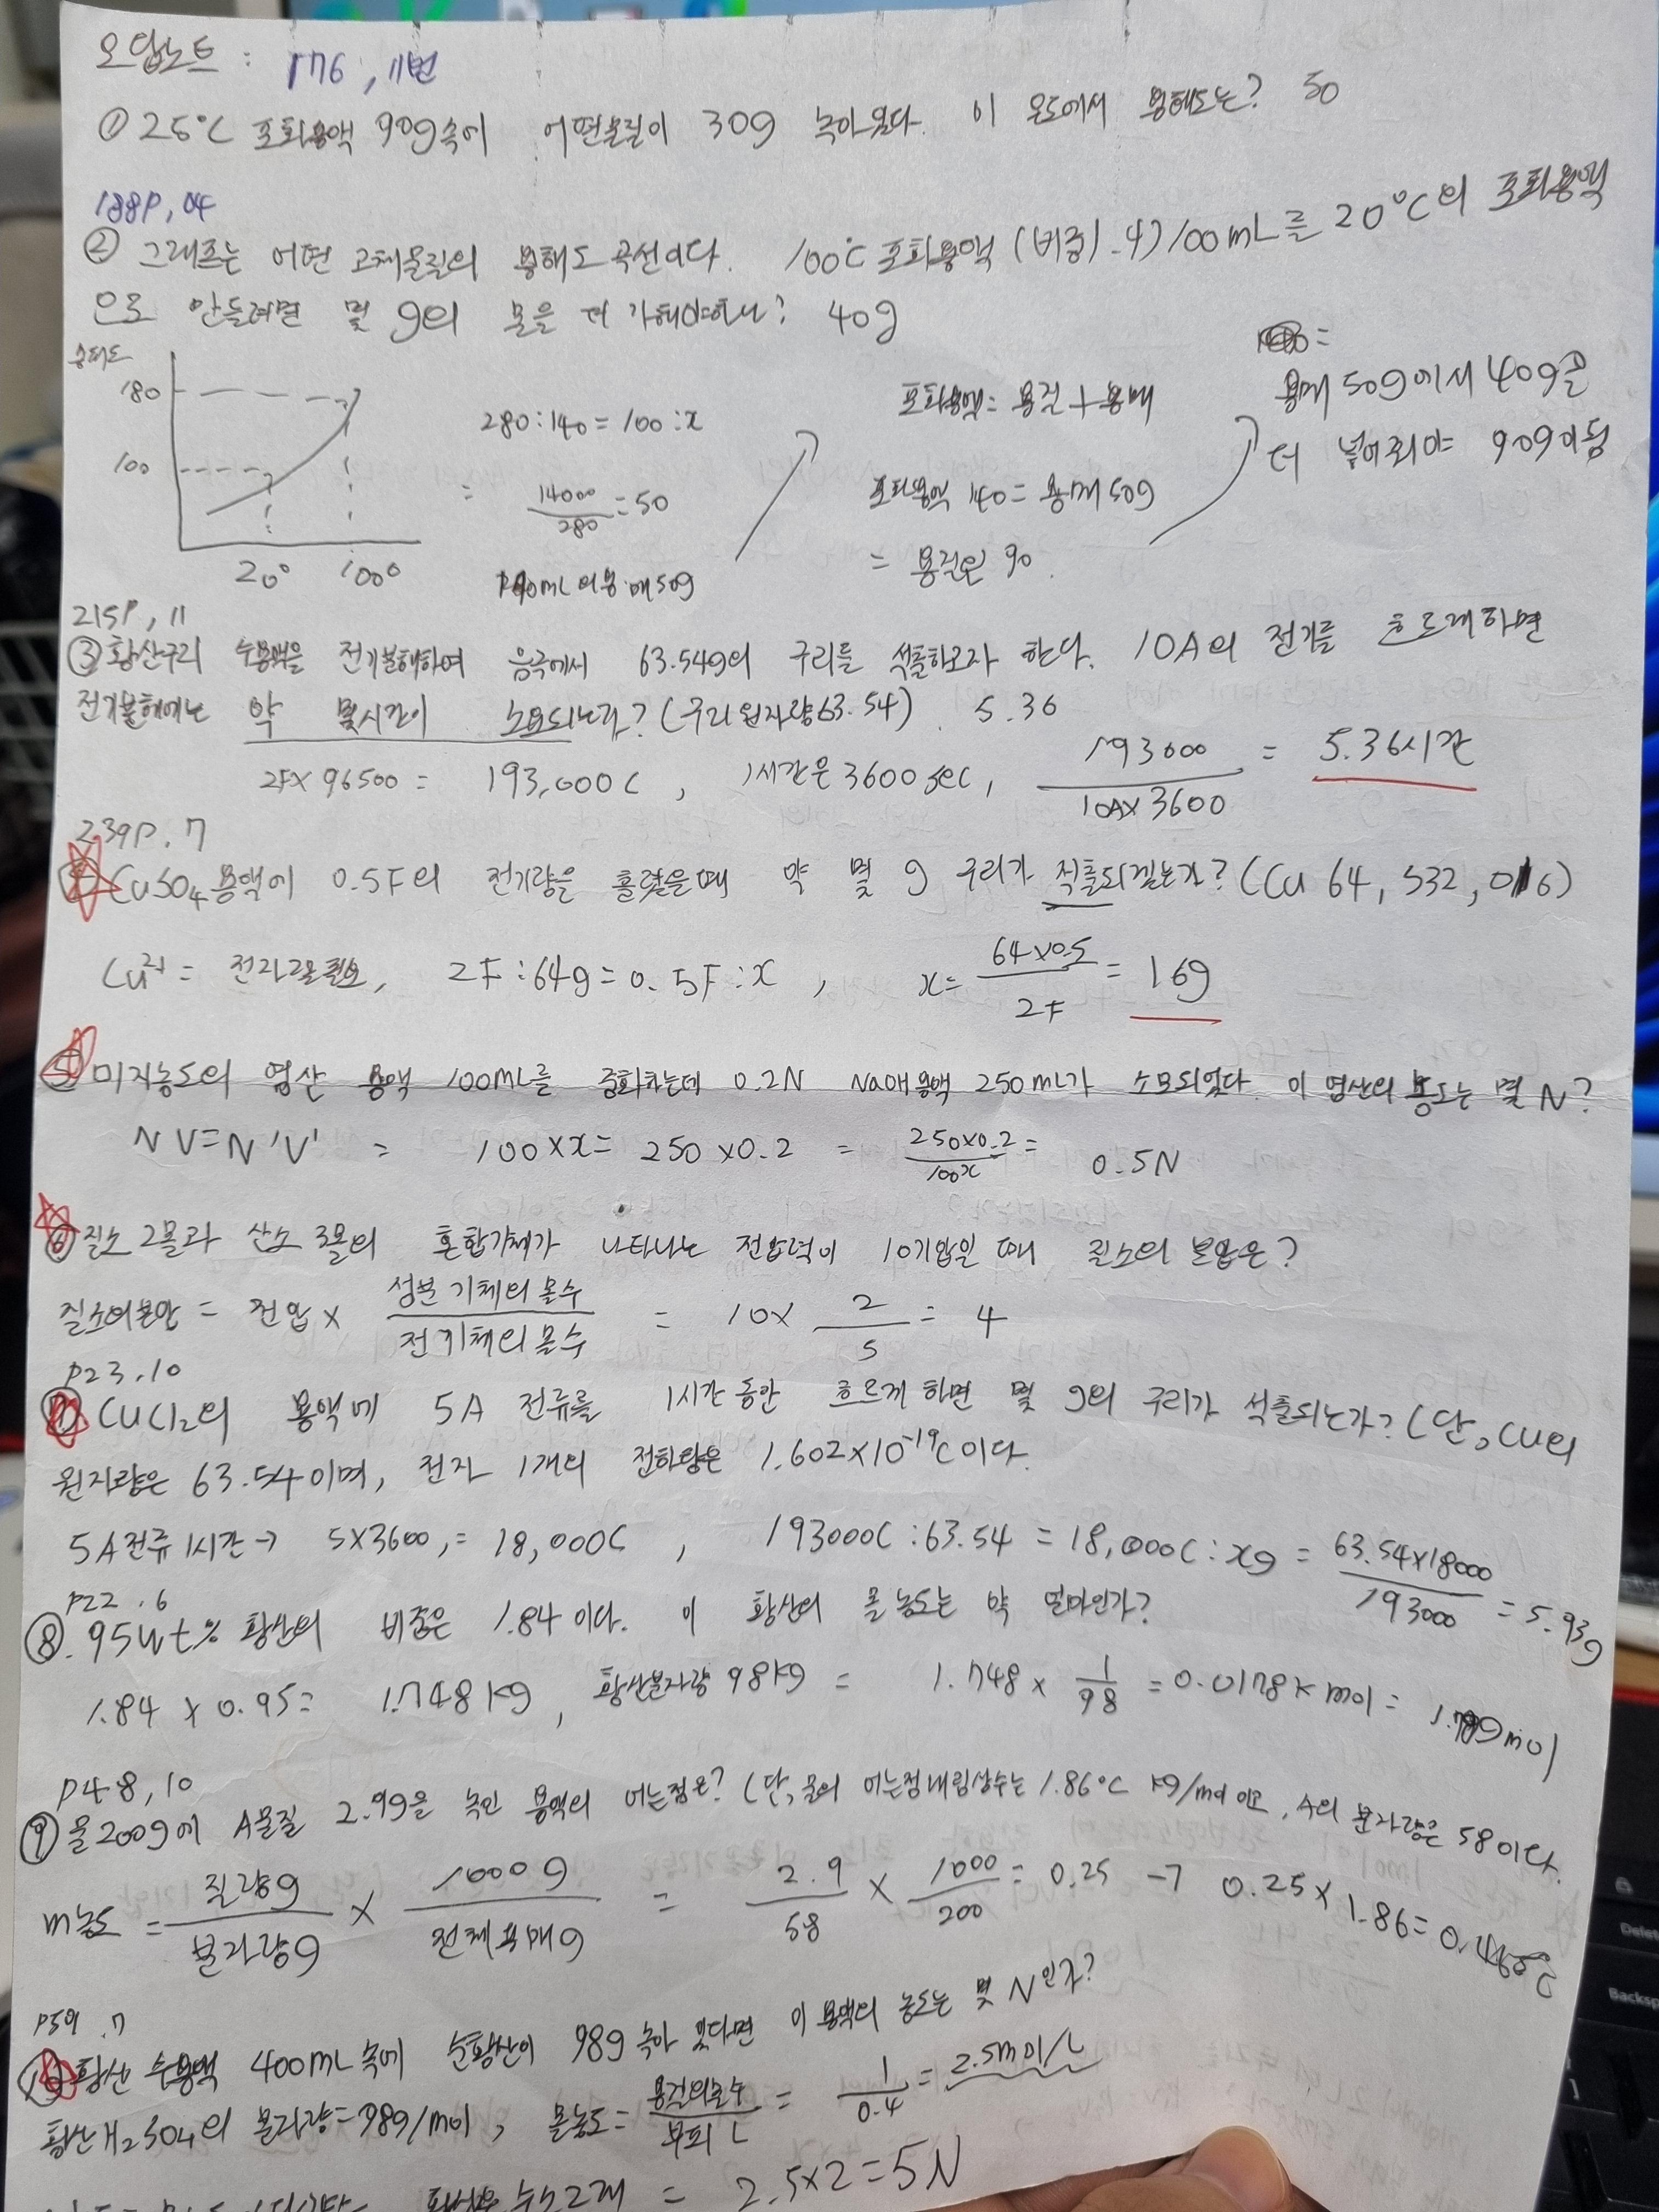 오답노트 : 176, 11번
① 25°C 포화용액 90g속에 어떤물질이 30g 녹아있다. 이 온도에서 용해도는? 50
188P, 04
② 그래프는 어떤 고체물질의 용해도 곡선이다. 100°C 포화용액 (비중1.4) 100mL를 20°C의 포화용액
으로 만들려면 몇 g의 물을 더 가해야하나? 40g
180
100
20° 100°
280:140=100:x
= 14000/280 =50
의용매50g
포화용액= 용질+용매
포화용액 140= 용매50g
= 용질은 90.
용매 50g에서 40g을
더 넣어줘야 90g이됨
215P, 11
③ 황산구리 수용액을 전기분해하여 음극에서 63.54g의 구리를 석출하고자 한다. 10A의 전기를 흐르게하면
전기분해에는 약 몇시간이 소요되는가? (구리원자량63.54) 5.36
2F×96500= 193,000C, 1시간은 3600sec, 193000/10A×3600 = 5.36시간
239P. 7
CuSO₄용액에 0.5F의 전기량을 흘렸을때 약 몇 g 구리가 석출되겠는가? (Cu 64, S32, O16)
Cu²⁺= 전자2몰필요, 2F:64g=0.5F:x, x= 64×0.5/2F = 16g
⑤ 미지농도의 염산 용액 100mL를 중화하는데 0.2N NaOH용액 250mL가 소모되었다. 이 염산의 농도는 몇 N?
NV=N'V' = 100×x= 250×0.2 = 250×0.2/100x = 0.5N
⑥ 질소 2몰과 산소 3몰의 혼합기체가 나타나는 전압력이 10기압일 때 질소의 분압은?
질소의분압 = 전압 × 성분 기체의 몰수/전기체의 몰수 = 10× 2/5 = 4
P23.10
⑦ CuCl₂의 용액에 5A 전류를 1시간 동안 흐르게 하면 몇 g의 구리가 석출되는가? (단, Cu의
원자량은 63.54이며, 전자 1개의 전하량은 1.602×10⁻¹⁹C이다.
5A전류 1시간→ 5×3600,= 18,000C, 193000C:63.54 = 18,000C:xg = 63.54×18000/193000 = 5.93g
P22.6
⑧. 95wt% 황산의 비중은 1.84이다. 이 황산의 몰 농도는 약 얼마인가?
1.84 × 0.95= 1.748kg, 황산분자량 98kg = 1.748 × 1/98 = 0.0178kmol =
P48, 10
⑨ 물200g에 A물질 2.9g을 녹인 용액의 어는점은? (단, 물의 어는점내림상수는 1.86°C kg/mol이고, A의 분자량은 58이다.
m농도 = 질량g/분자량g × 1000g/전체용매g = 2.9/58 × 1000/200 = 0.25 → 0.25×1.86=
P59.7
⑩ 황산 수용액 400mL 속에 순황산이 98g 녹아 있다면 이 용액의 농도는 몇 N인가?
황산 H₂SO₄의 분자량=98g/mol, 몰농도= 용질의몰수/부피 L = 1/0.4 = 2.5mol/L
수소2개 = 2.5×2=5N